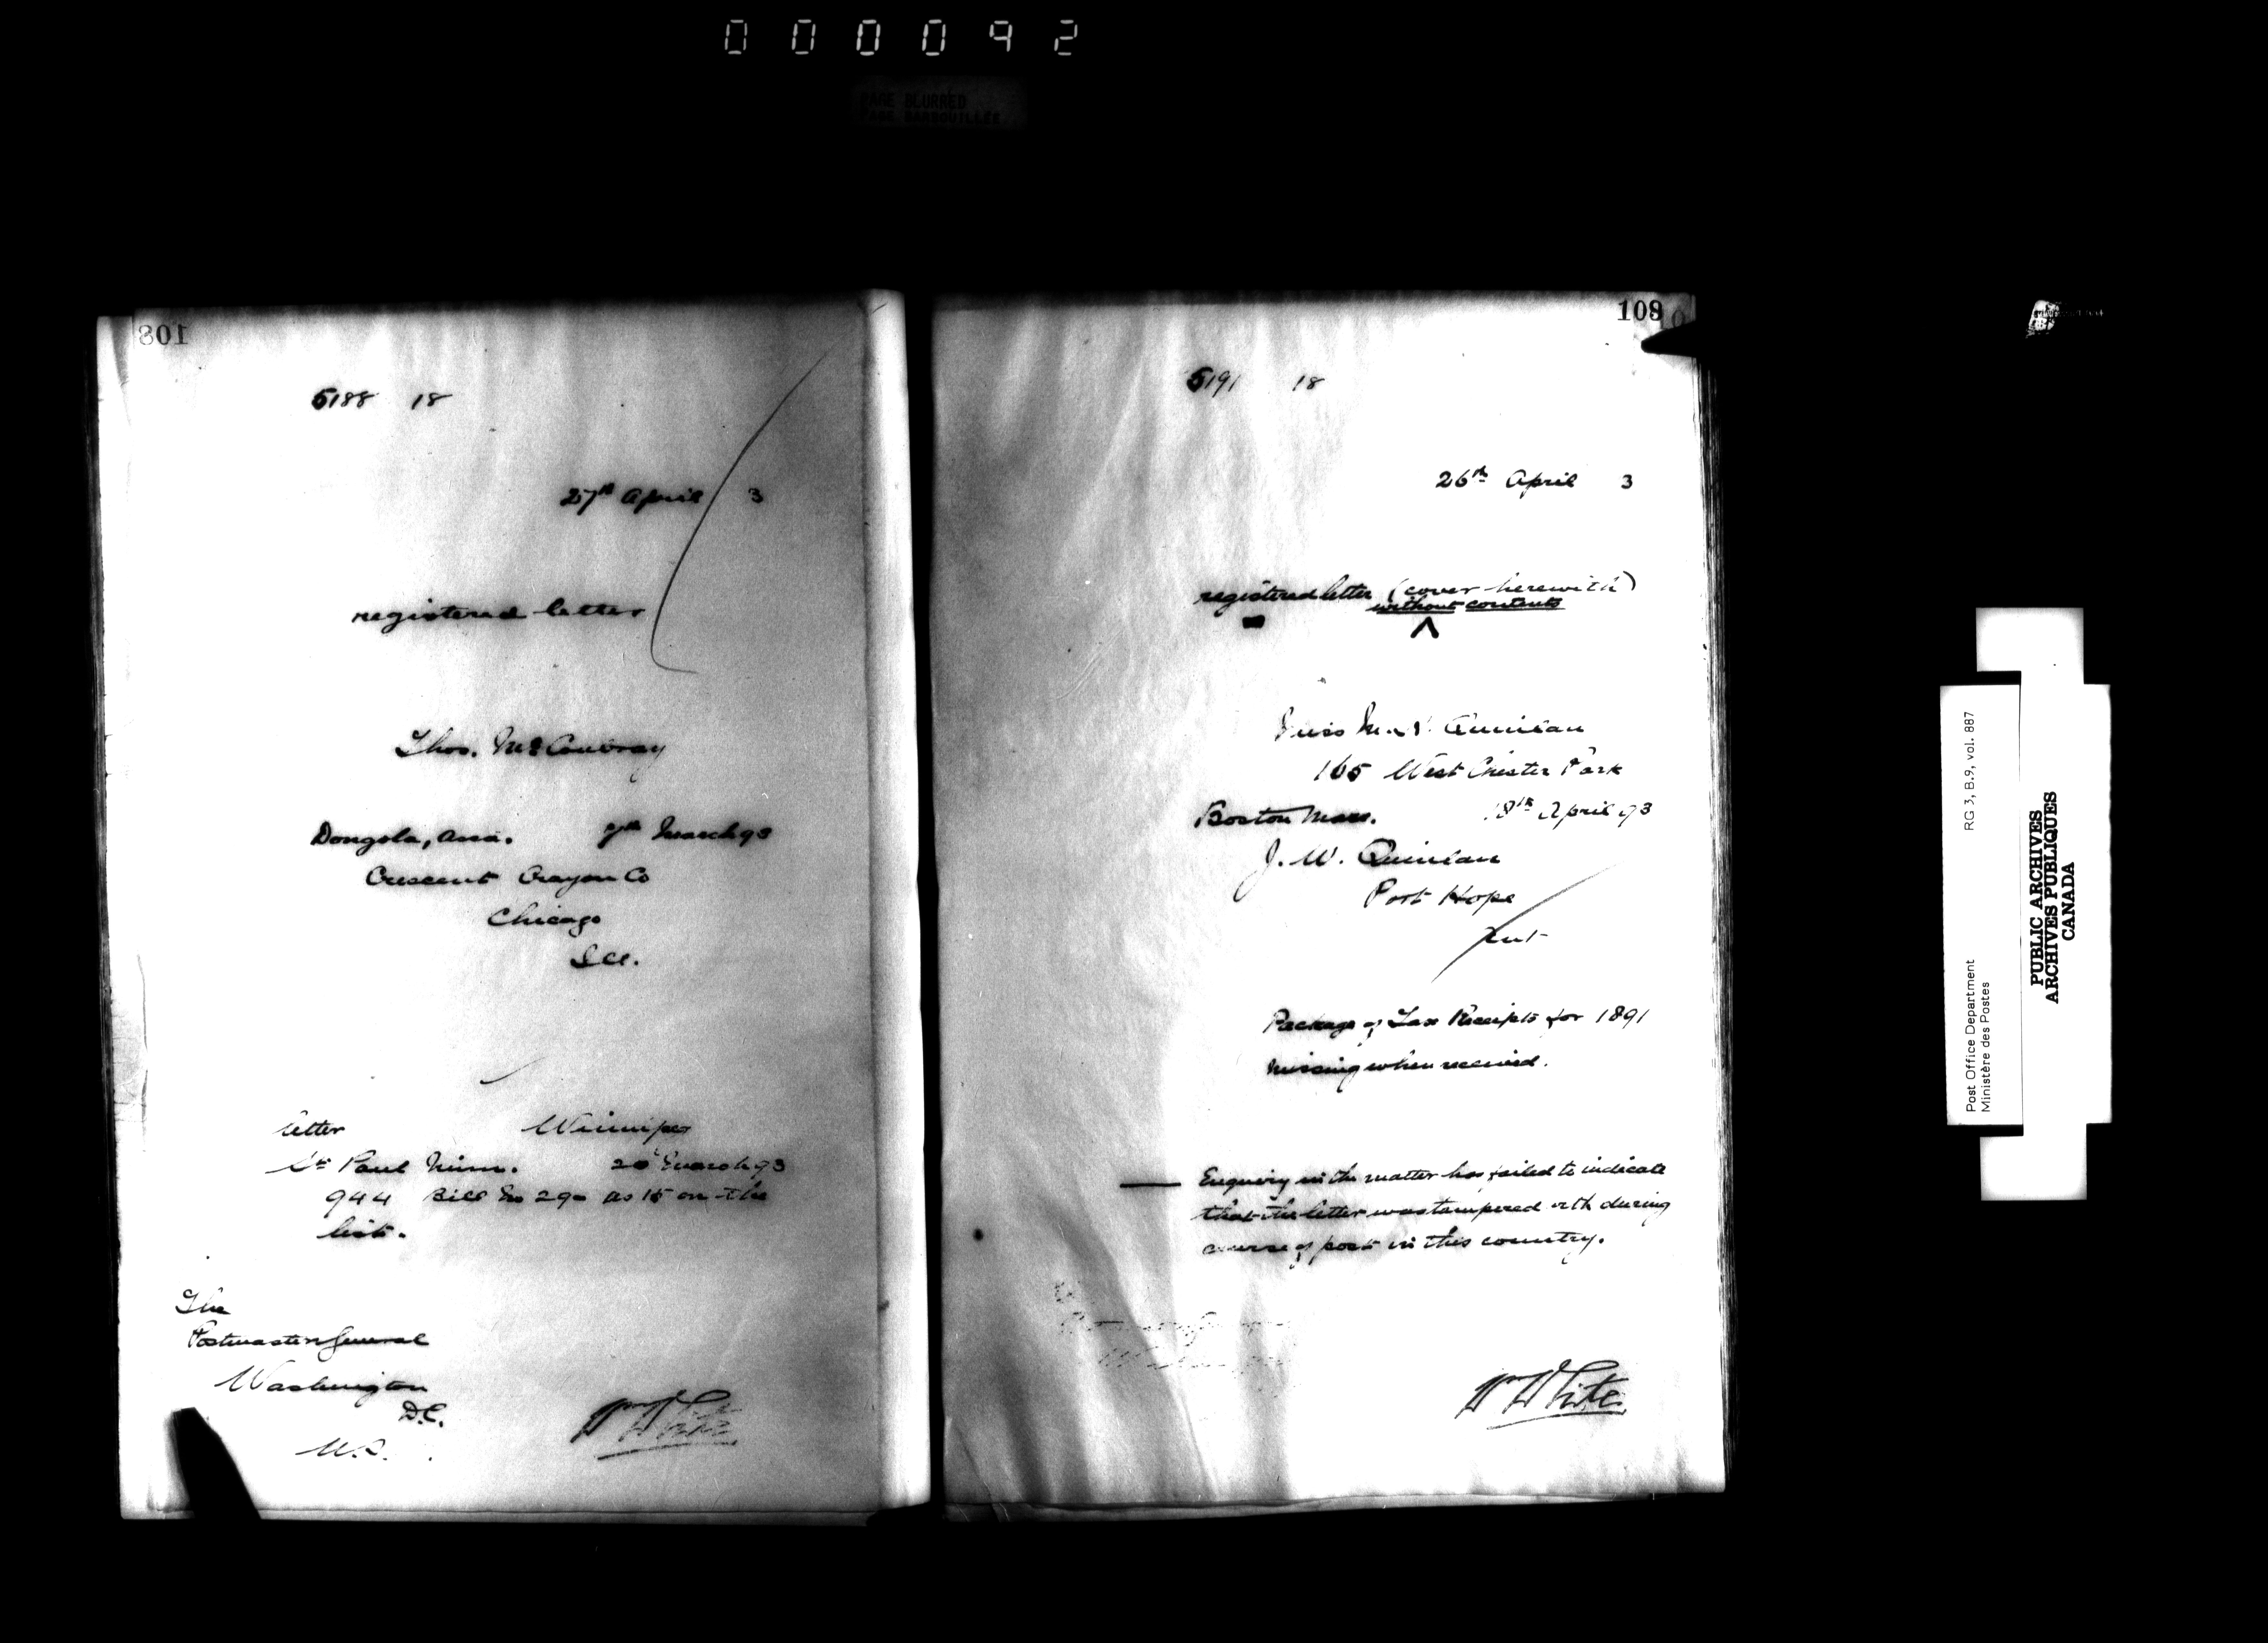 000092
PAGE BLURRED
PAGE BARBOUILLÉE
108
5188 18
27th April 3
registered letter
Thos. McConvray
Dongola, Assa. 7th March 93
Crescent Crayon Co
Chicago
Ill.
letter Winnipeg
St Paul Minn. 20 March 93
944 Bill No 290 as 15 on the
list.
The
Postmaster General
Washington
D.C.
U.S.
Wm White
109
5191 18
26th April 3
registered letter (cover herewith)
without contents
Miss M. Quinlan
165 West Chester Park
Boston Mass. 18th April 93
J. W. Quinlan
Port Hope
Ont
Package of Tax Receipts for 1891
missing when received.
Enquiry in the matter has failed to indicate
that the letter was tampered with during
course of post in this country.
Wm White
Post Office Department
Ministère des Postes
RG 3, B.9, vol. 887
PUBLIC ARCHIVES
ARCHIVES PUBLIQUES
CANADA